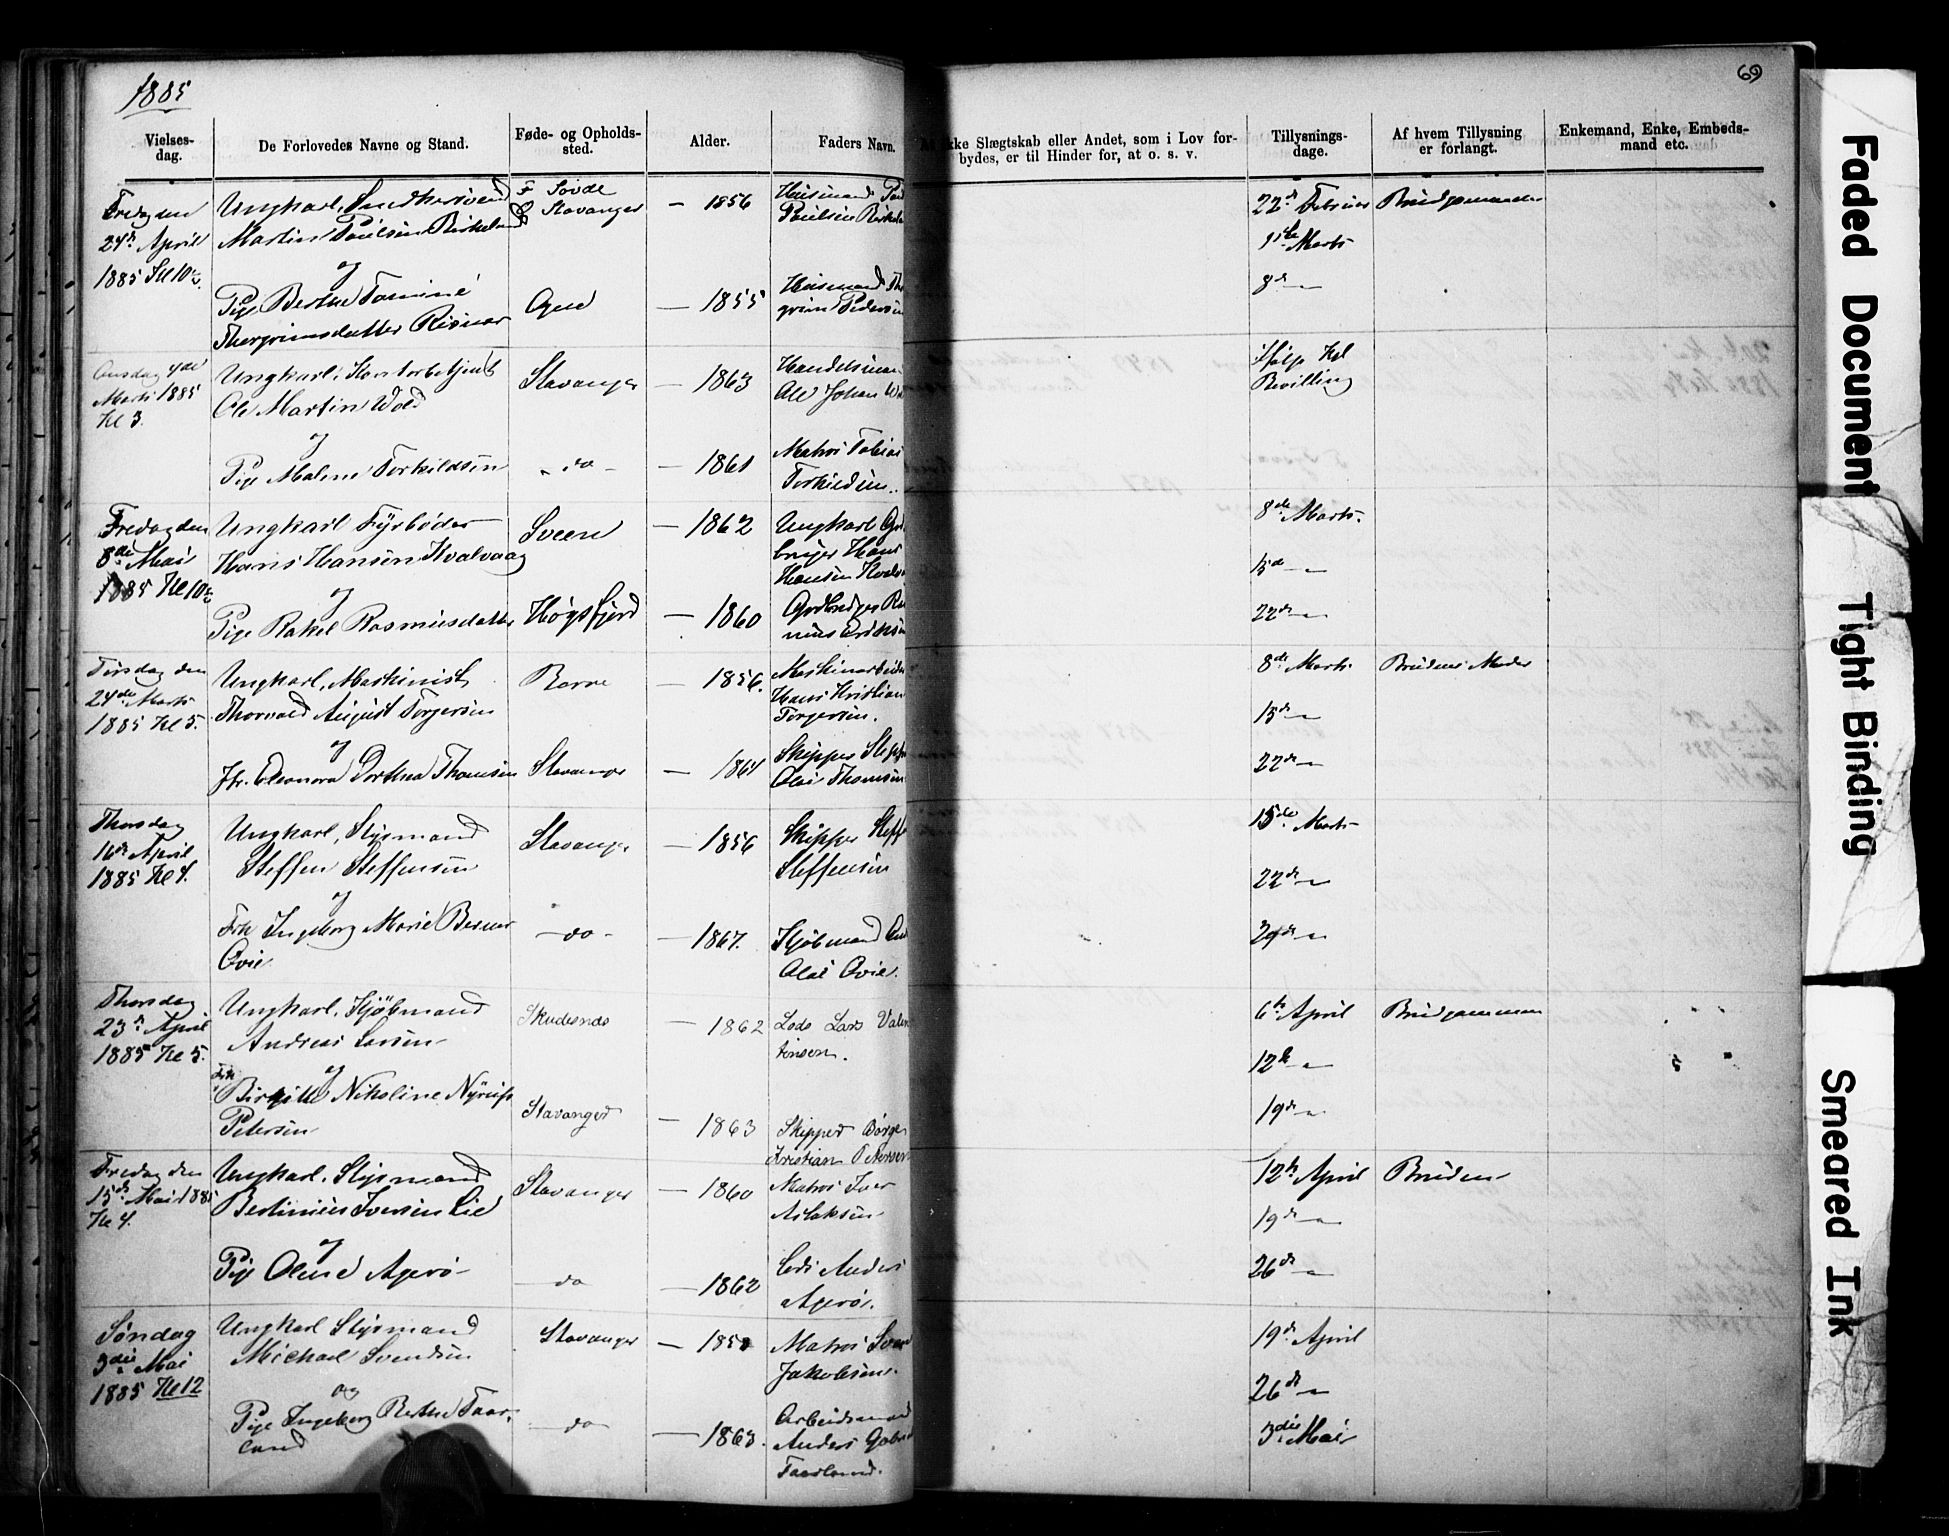 1885
69
Vielses-
dag.
De Forlovedes Navne og Stand.
Føde- og Opholds-
sted.
Alder.
Faders Navn.
ikke Slægtskab eller Andet, som i Lov for-
bydes, er til Hinder for, at o. s. v.
Tillysnings-
dage.
Af hvem Tillysning
er forlangt.
Enkemand, Enke, Embeds-
mand etc.
Fredag den
24de April
1885 Kl 10
Ungkarl, Snedkersvend
Martin Paulsen Birkeland
og
Pige Berthe Tomine
Thorgrimsdatter Risnes
F Sövde
O Stavanger
Ogne
— 1856
— 1855
Husmand
Paulsen
Husmand
grim Pedersen
22de Februar
1ste Marts
8de —"—
Brudgommen
Onsdag 4de
Marts 1885
Kl 3.
Ungkarl, Kontorbetjent
Ole Martin Wold
og
Pige Malene Torkildsen
Stavanger
— do —
— 1863
— 1861
Handelsman
Ole Johan
Matros Tobias
Torkildsen
ifølge Kgl
Bevilling
Fredag den
8de Mai
1885 Kl 10
Ungkarl Fyrböder
Hans Hansen Kvalvaag
og
Pige Rakel Rasmusdatter
Sveen
Høgsfjord
— 1862
— 1860
Ungkarl
bruger Hans
Hansen
Gdbruger
8de Marts
15de —"—
22de —"—
Tirsdag den
24de Marts
1885 Kl 5.
Ungkarl, Maskinist
Thorvald August Torgersen
og
Jfr. Eleonora Dorthea Thomsen
Borre
Stavanger
— 1856.
— 1864
Maskinarbeider
Hans Kristian
Torgersen.
Skipper
Olai Thomsen
8de Marts
15de —"—
22de —"—
Brudens Moder
Thorsdag
16de April
1885 Kl 4.
Ungkarl, Styrmand
Steffen Steffensen
og
Frk Ingeborg Marie Berner
Qvie
Stavanger
— do —
— 1856
— 1867.
Skipper
Steffensen
Kjöbmand
Olai Qvie.
15de Marts
22de —"—
29de —"—
Thorsdag
23de April
1885 Kl 5.
Ungkarl, Kjöbmand
Andreas Larsen
og
Frk
Birgitte Nikoline Nyrup
Petersen
Skudesnes
Stavanger
— 1862
— 1863
Lods Lars Valen
tinsen.
Skipper Börge
Kristian Petersen
6te April
12te —"—
19de —"—
Brudgommen
Fredag den
15de Mai 1885
Kl 4.
Ungkarl, Styrmand
Bertinius Iversen Lie
og
Pige Oline Agerö
Stavanger
— do
— 1860
— 1862
Matros Iver
Aslaksen
Lods Anders
Agerö.
12te April
19de —"—
26de —"—
Bruden
Söndag
3die Mai
1885 Kl 12
Ungkarl Styrmand
Michael Svendsen
og
Pige Ingeborg Berthe Taar-
land
Stavanger
— do
— 1863.
Matros
Jakobsen.
Arbeidsmand
Anders
Taarland.
19de April
26de —"—
3die Mai
Faded Document
Tight Binding
Smeared Ink